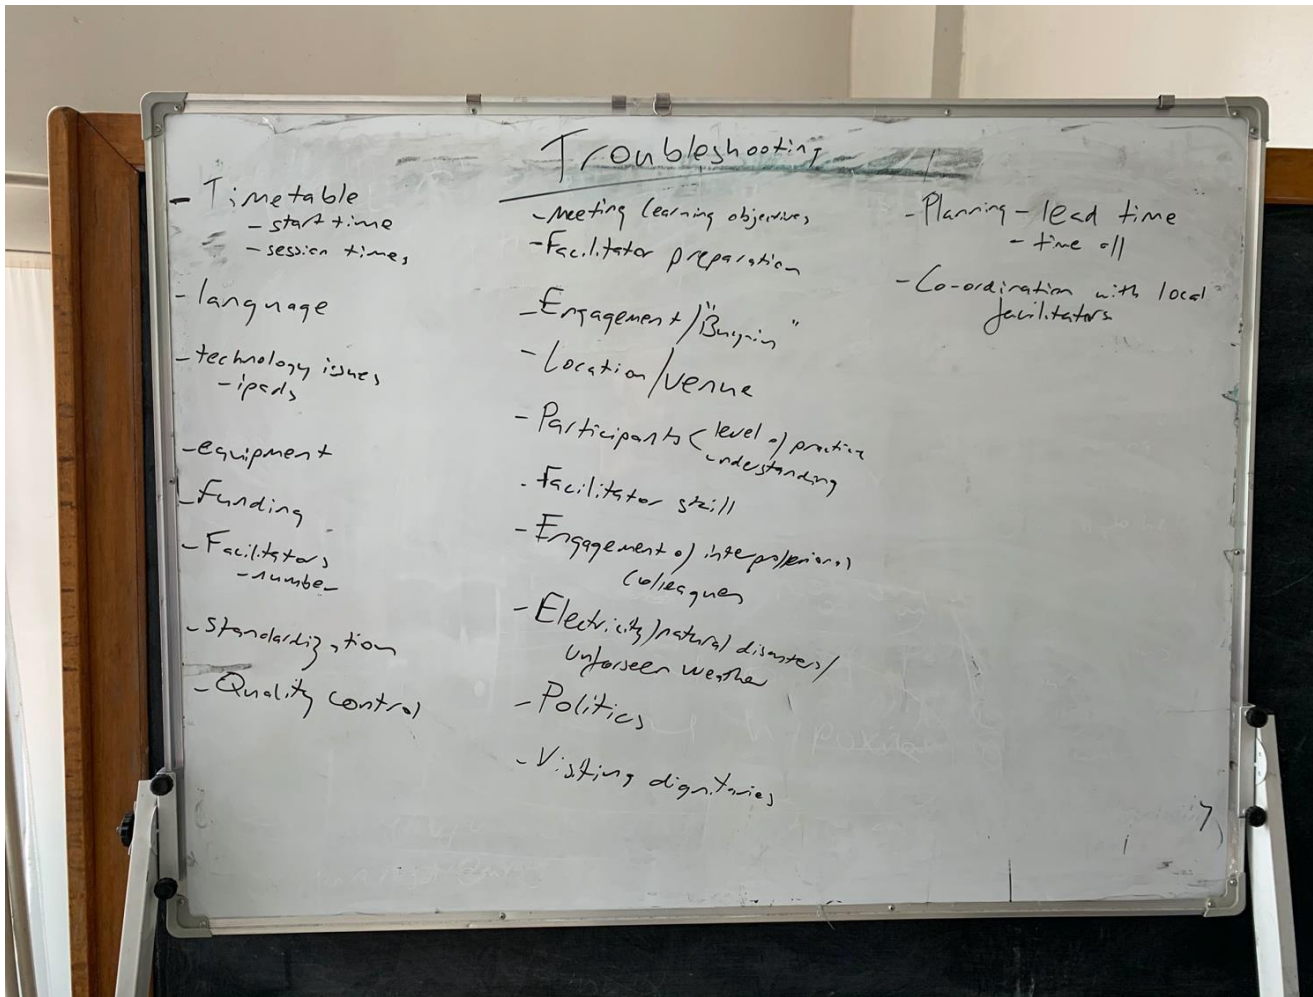 Troubleshooting
- Timetable
- start time
- session times
- language
- technology issues
- ipads
- equipment
- Funding
- Facilitators
- number
- Standardization
- Quality control
- Meeting learning objectives
- Facilitator preparation
- Engagement/"Buy-in"
- Location/venue
- Participants < level of practice
understanding
- Facilitator skill
- Engagement of interprofessional
colleagues
- Electricity/natural disasters/
unforseen weather
- Politics
- Visiting dignitaries
- Planning - lead time
- time off
- Co-ordination with local
facilitators